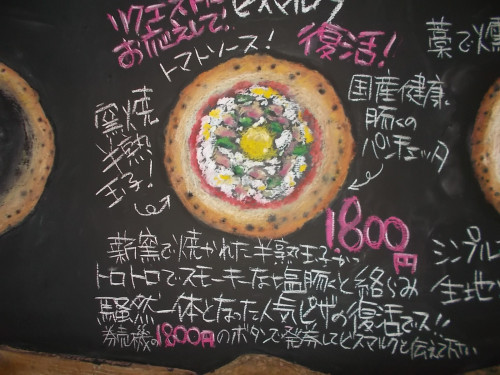 リクエストに
お応えして!
ビスマルク
復活!
トマトソース!
窯焼
半熟
玉子!
国産健康
豚肉の
パンチェッタ
1,800円
薪窯で焼かれた半熟玉子が
トロトロでスモーキーな塩豚肉と絡らみ
騒然一体となった人気ピザの復活でス!!
券売機の1800円のボタンで発券してビスマルクと伝えて下さい
藁で燻
シンプル
生地